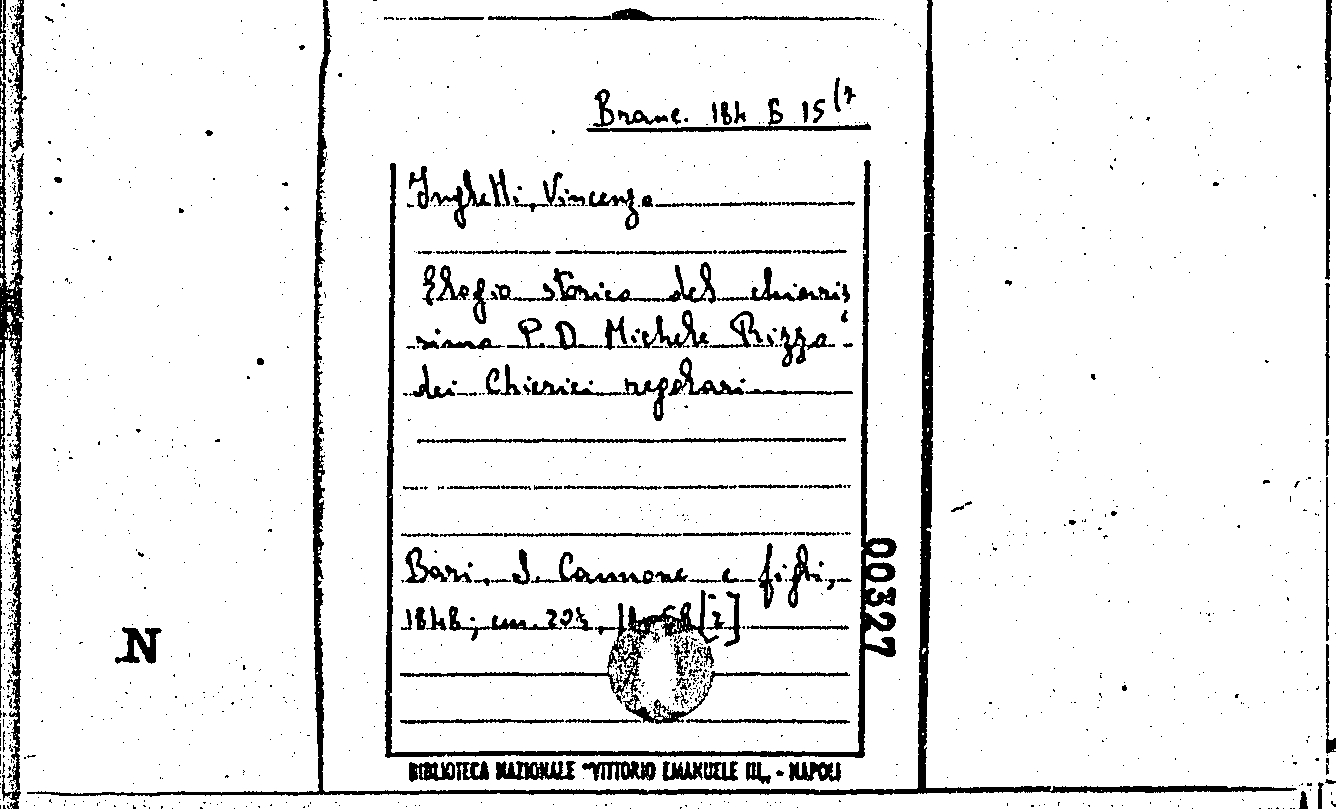 Branc. 184 B 15 (7
Ingletti, Vincenzo
Elogio storico del chiaris
simo P. D. Michele Rizza
dei Chierici regolari
Bari, S. Cannone e figli,
1848; cm. 20½, [2]
00327
N
BIBLIOTECA NAZIONALE "VITTORIO EMANUELE III„ - NAPOLI